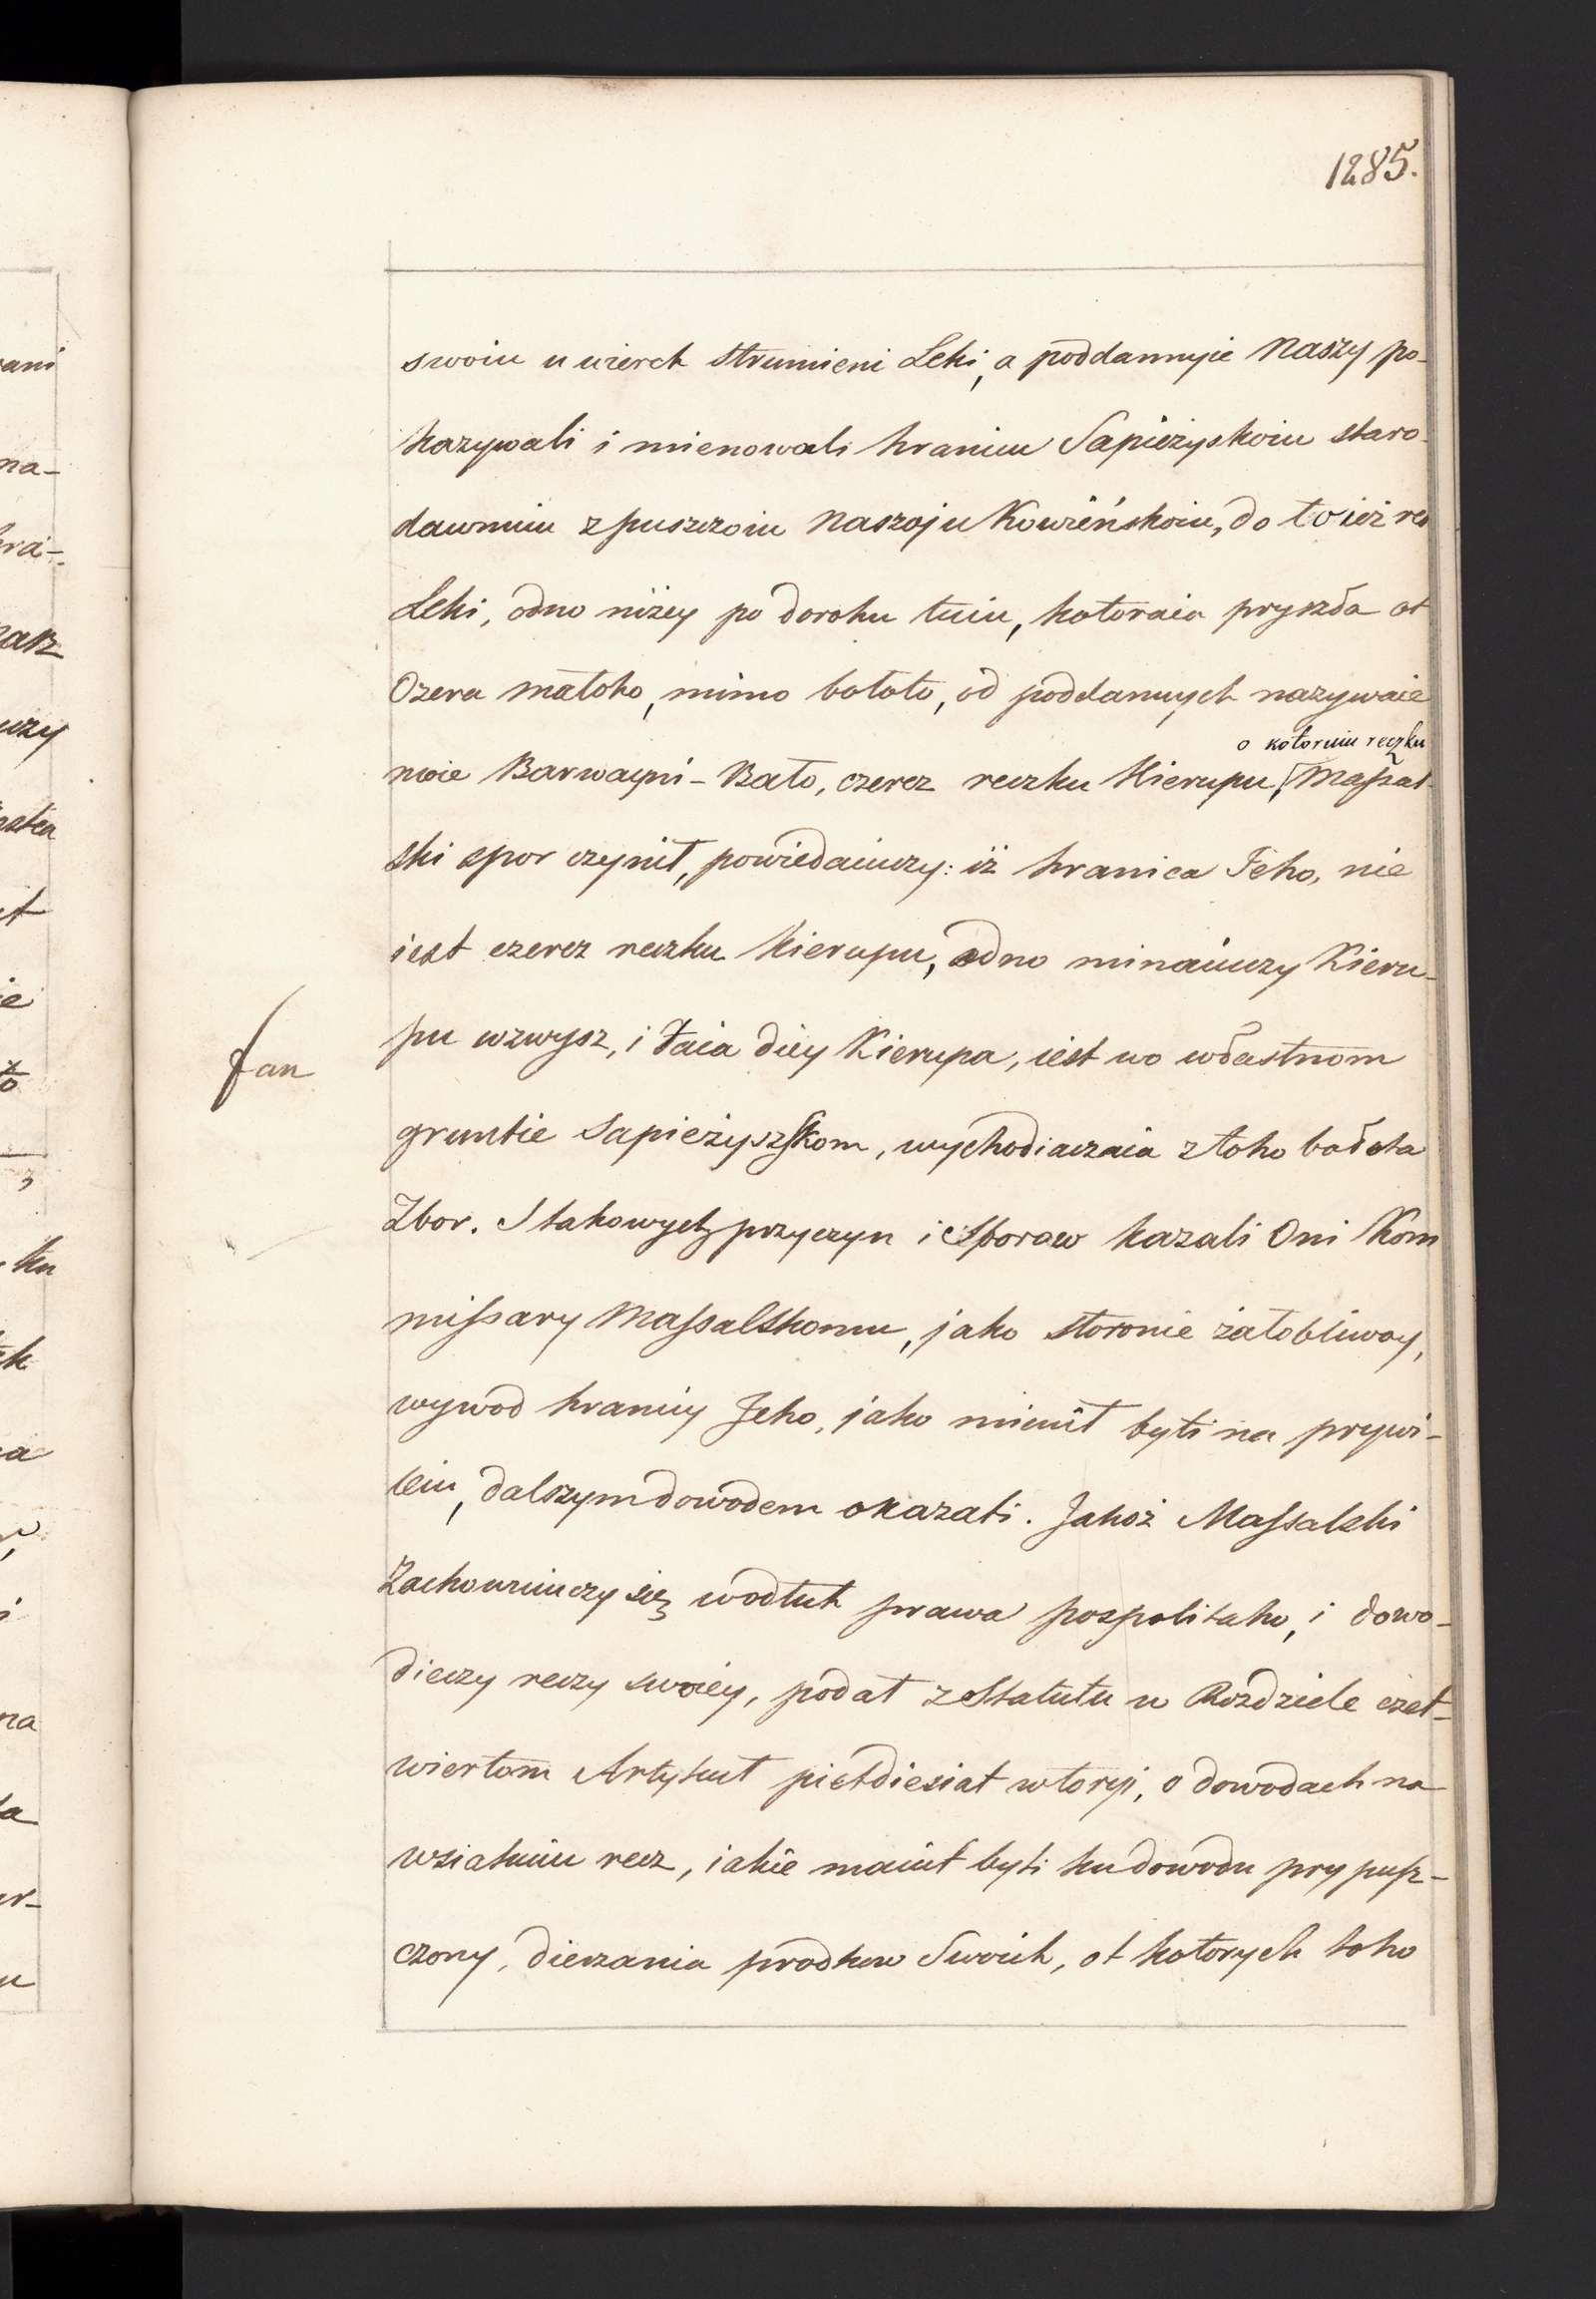 1285.
swoiu u wierch strumieni Leki, a poddannyie Naszy po-
kazywali i mienowali hranicu Sapieżyskoiu staro-
dawnuiu z puszczoiu Naszoju Kowieńskoiu, do toież re
Leki, odno niżey po dorohu tuiu, kotoraia pryszła ot
Ozera małoho, mimo bołoto, od poddannych nazywaie
moie Barwayni-Bało, czerez reczku Kierupu, o kotoruiu reczku Massal-
ski spor czynił, powiedaiuczy: iż hranica Jeho, nie
iest czerez reczku Kierupu, odno minaiuczy Kieru-
pu wzwysz, i taia diey Kierupa, iest wo własnom
fan
gruntie Sapieżyszskom, wychodiaczaia z toho bałota
Zbor. Stakowych przyczyn i Sporow kazali Oni Kom
missary Massalskomu, jako storonie żałobliwoy,
wywod hranicy Jeho, jako mienił byti na prywi-
leiu, dalszym dowodem okazati. Jakoż Massalski
Zachowuiuczy się wodłuh prawa pospolitaho, i dowo-
dieczy reczy swoiey, podał z Statutu w Rozdziele czet-
wiertom Artykuł pietdiesiat wtoryi, o dowodach na
wsiakuiu recz, iakie maiut byti ku dowodu prypusz-
czony, dierzania prodkow Swoich, ot kotorych toho